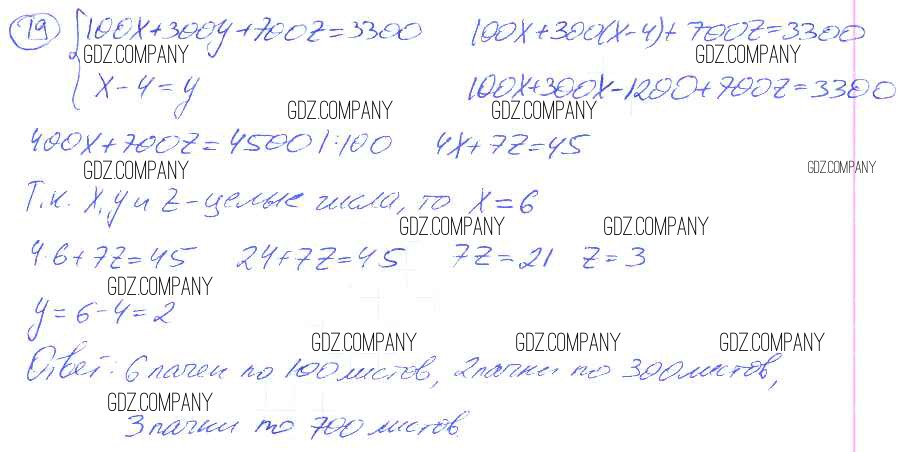 19 {100x+300y+700z=3300 100x+300(x-4)+700z=3300
GDZ.COMPANY GDZ.COMPANY
x-4=y 100x+300x-1200+700z=3300
GDZ.COMPANY GDZ.COMPANY
400x+700z=4500 |:100 4x+7z=45
GDZ.COMPANY GDZ.COMPANY
Т.к. x, y и z - целые числа, то x=6
GDZ.COMPANY GDZ.COMPANY
4·6+7z=45 24+7z=45 7z=21 z=3
GDZ.COMPANY
y=6-4=2
GDZ.COMPANY GDZ.COMPANY GDZ.COMPANY
Ответ: 6 пачек по 100 листов, 2 пачки по 300 листов,
GDZ.COMPANY
3 пачки по 700 листов